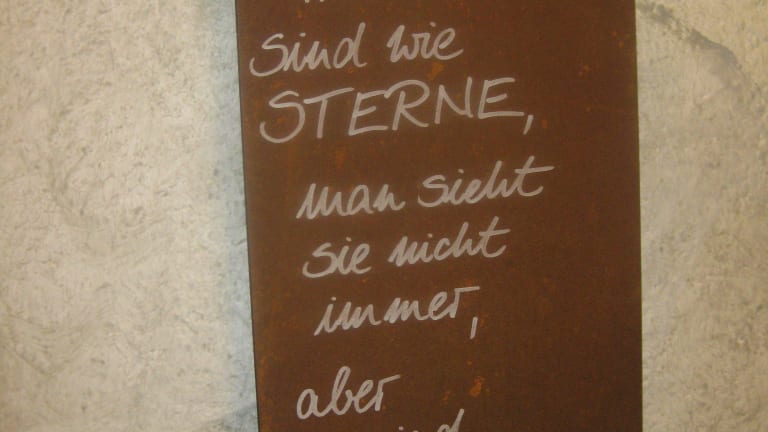 sind wie
STERNE,
man sieht
sie nicht
immer,
aber